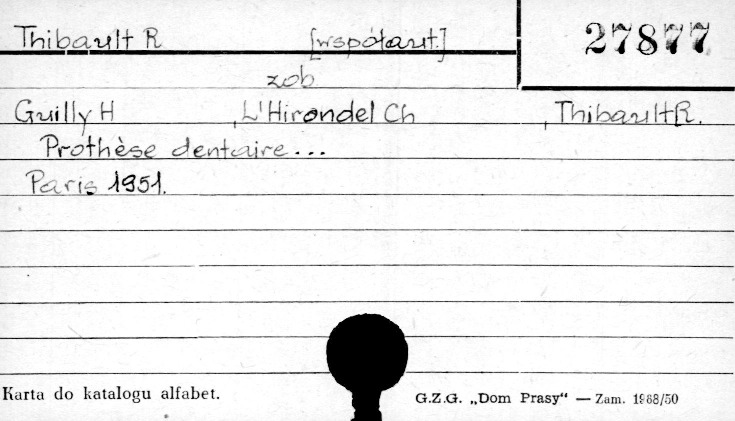 Thibault R [współaut.] 27877
zob
Guilly H , L'Hirondel Ch , Thibault R.
Prothèse dentaire...
Paris 1951.
Karta do katalogu alfabet. G.Z.G. „Dom Prasy“ — Zam. 1988/50